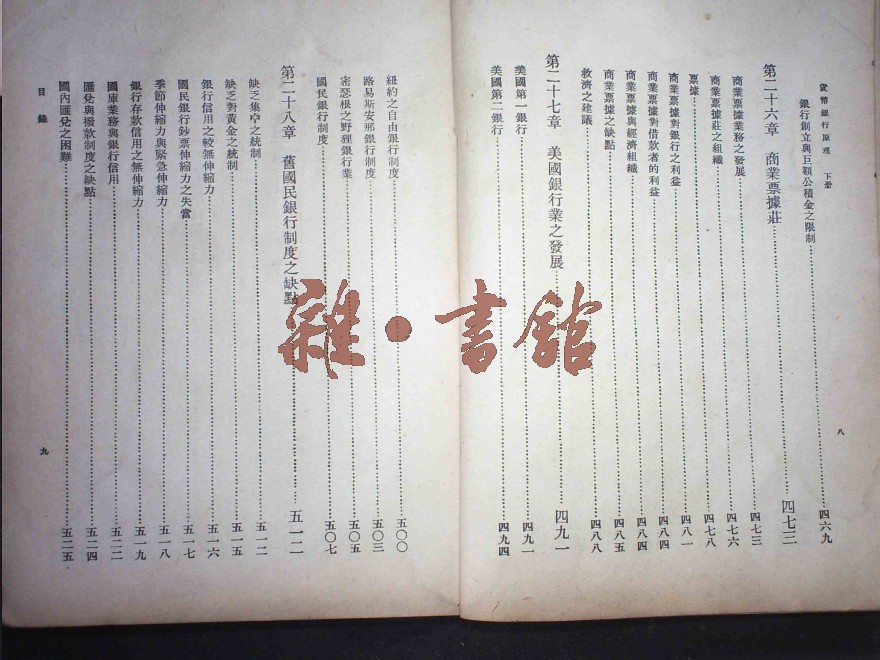 貨幣銀行原理　下册
八
銀行創立與巨額公積金之限制……四六九
第二十六章　商業票據莊……四七三
商業票據業務之發展……四七三
商業票據莊之組織……四七六
票據……四七八
商業票據對銀行之利益……四八一
商業票據對借款者的利益……四八四
商業票據與經濟組織……四八四
商業票據之缺點……四八五
救濟之建議……四八八
第二十七章　美國銀行業之發展……四九一
美國第一銀行……四九一
美國第二銀行……四九四
紐約之自由銀行制度……五〇〇
路易斯安那銀行制度……五〇三
密瑟根之野狸銀行業……五〇五
國民銀行制度……五〇七
第二十八章　舊國民銀行制度之缺點……五一二
缺乏集中之統制……五一二
缺乏對黃金之統制……五一五
銀行信用之較無伸縮力……五一六
國民銀行鈔票伸縮力之失當……五一七
季節伸縮力與緊急伸縮力……五一八
銀行存款信用之無伸縮力……五一九
國庫業務與銀行信用……五二二
匯兌與撥款制度之缺點……五二四
國內匯兌之困難……五二五
目錄
九
雜·書館